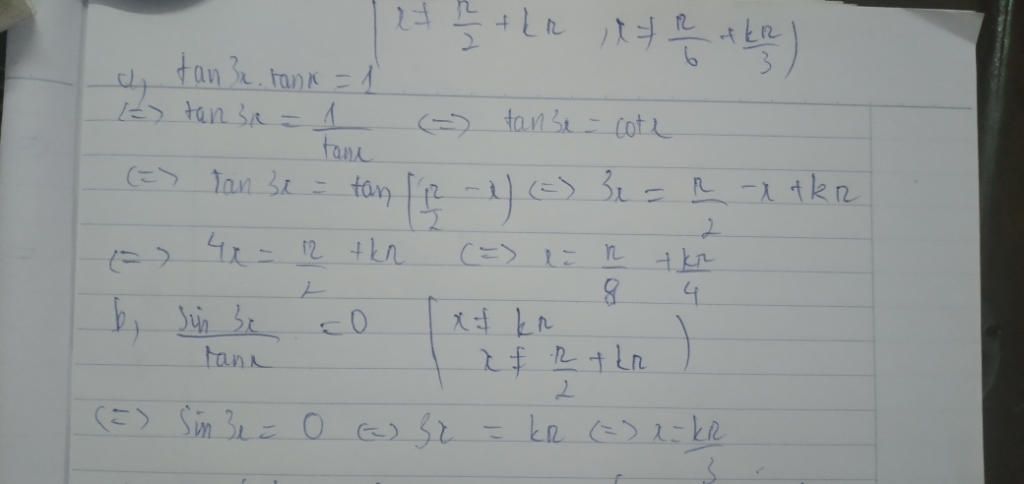 (x ≠ π/2 + kπ , x ≠ π/6 + kπ/3)
a, tan3x.tanx = 1
<=> tan3x = 1/tanx <=> tan3x = cotx
<=> tan3x = tan(π/2 - x) <=> 3x = π/2 - x + kπ
<=> 4x = π/2 + kπ <=> x = π/8 + kπ/4
b, sin3x/tanx = 0 (x ≠ kπ
x ≠ π/2 + kπ)
<=> sin3x = 0 <=> 3x = kπ <=> x = kπ/3